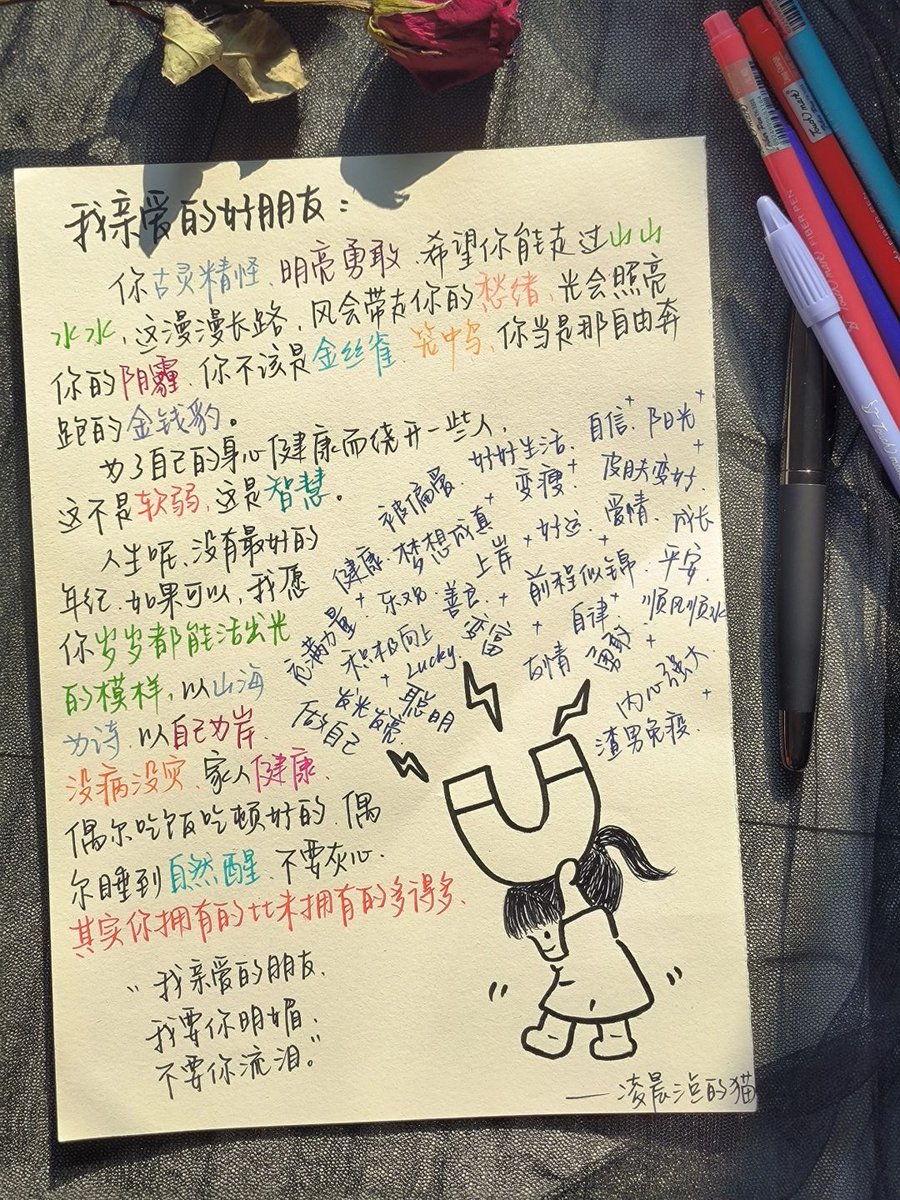 我亲爱的好朋友：
你古灵精怪、明亮勇敢、希望你能走过山山
水水，这漫漫长路，风会带走你的愁绪，光会照亮
你的阴霾、你不该是金丝雀、笼中鸟，你当是那自由奔
跑的金钱豹。
为了自己的身心健康而绕开一些人，
这不是软弱，这是智慧。
人生呢、没有最好的
年纪、如果可以，我愿
你岁岁都能活出光
的模样，以山海
为诗、以自己为岸、
没病没灾、家人健康、
偶尔吃饭吃顿好的、偶
尔睡到自然醒、不要灰心、
其实你拥有的比未拥有的多得多、
被偏爱、好好生活、自信、阳光+
健康、梦想成真+变瘦、皮肤变好+
充满力量+乐观、善良、上岸+好运、爱情、成长
积极向上+Lucky、变富+前程似锦、平安、
发光发亮、聪明 友情 自律、勇敢+顺风顺水
后的自己 内心强大+
渣男免疫、
"我亲爱的朋友、
我要你明媚、
不要你流泪。"
——凌晨 的猫
FIBER PEN